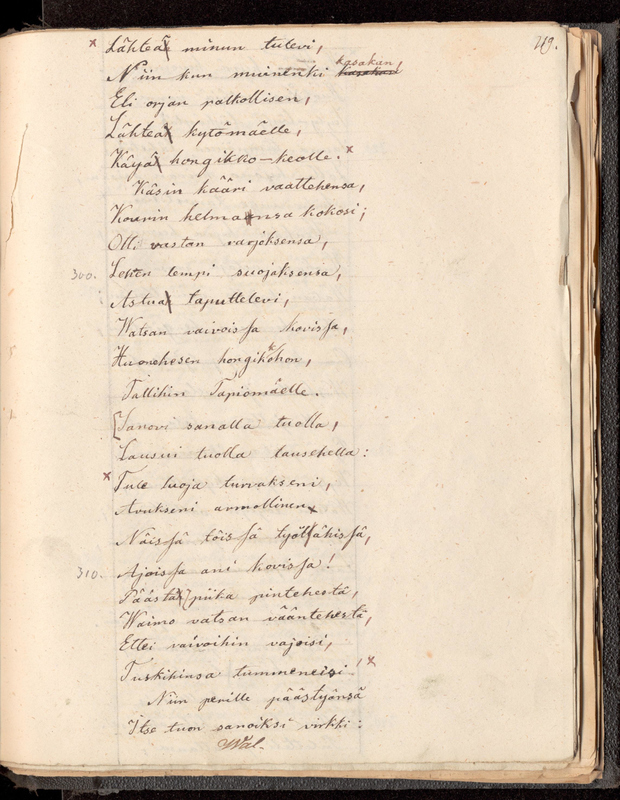 219.
Lähteä minun tulevi,
Niin kun muinenki kasakan,
Eli orjan palkollisen,
Lähteä kytömäelle,
Käyä hongikko-keolle.
Käsin kääri vaattehensa,
Kourin helmansa kokosi;
Otti vastan varjoksensa,
300. Lehen lempi suojaksensa,
Astua taputtelevi,
Watsan vaivoissa kovissa,
Huonehesen hongikohon,
Tallihin Tapiomäelle.
Sanovi sanalla tuolla,
Lausui tuolla lausehella:
Tule luoja turvakseni,
Avukseni armollinen
Näissä töissä työlähissä,
310. Ajoissa ani kovissa!
Päästä piika pintehestä,
Waimo vatsan vääntehestä,
Ettei vaivoihin vajoisi,
Tuskihinsa tummeneisi!
Niin perille päästyänsä
Itse tuon sanoiksi virkki:
Wal.